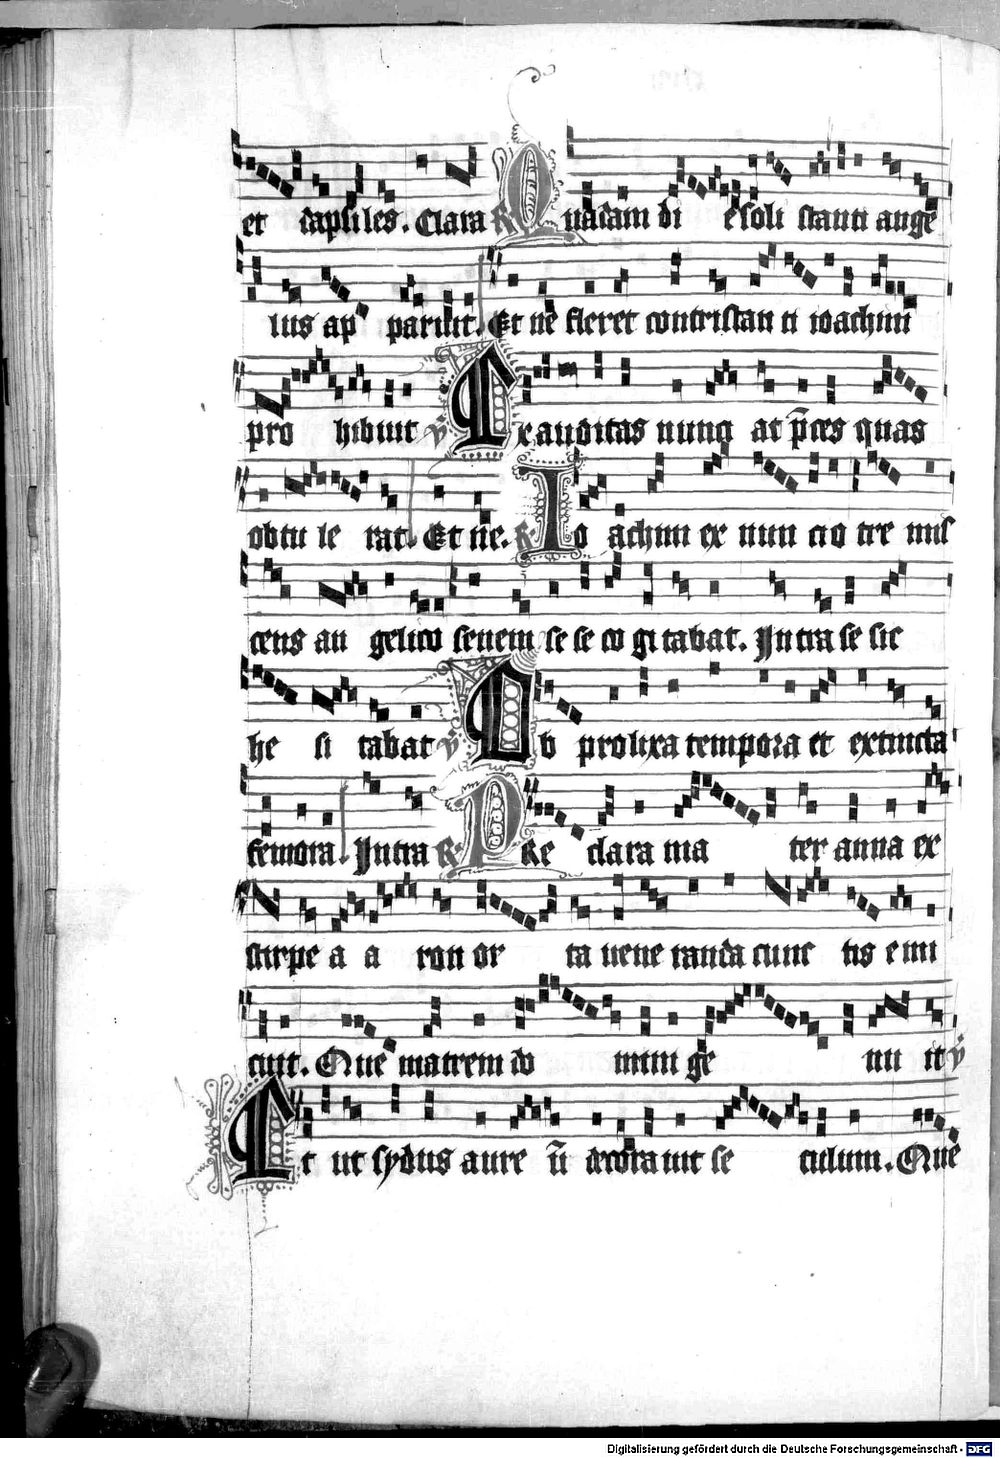 et dapsiles. Clara R Quadam di e soli stanti ange
lus ap paruit. Et ne fleret contristan ti ioachim
pro hibuit V Exauditas nunci at p̄ces quas
obtu le rat. Et ne. R Io achim ex nun cio tre mis
cens an gelico senem se se co gi tabat. Intra se sic
he si tabat V Ob prolixa tempora et extincta
femora. Intra R PRe clara ma ter anna ex
stirpe a a ron or ta uene randa cunc tis e mi
cuit. Que matrem do mini ge nu it V
Et ut sydus aure ū decora uit se culum. Que
Digitalisierung gefördert durch die Deutsche Forschungsgemeinschaft - DFG